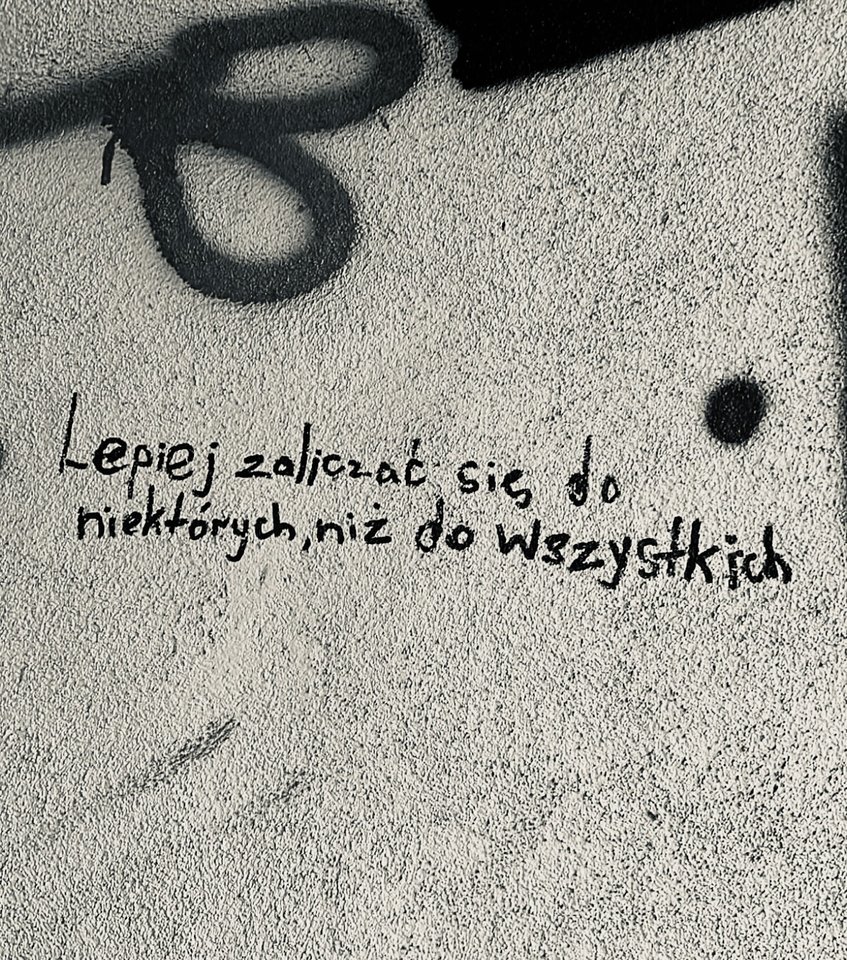 Lepiej zaliczać się do
niektórych, niż do wszystkich